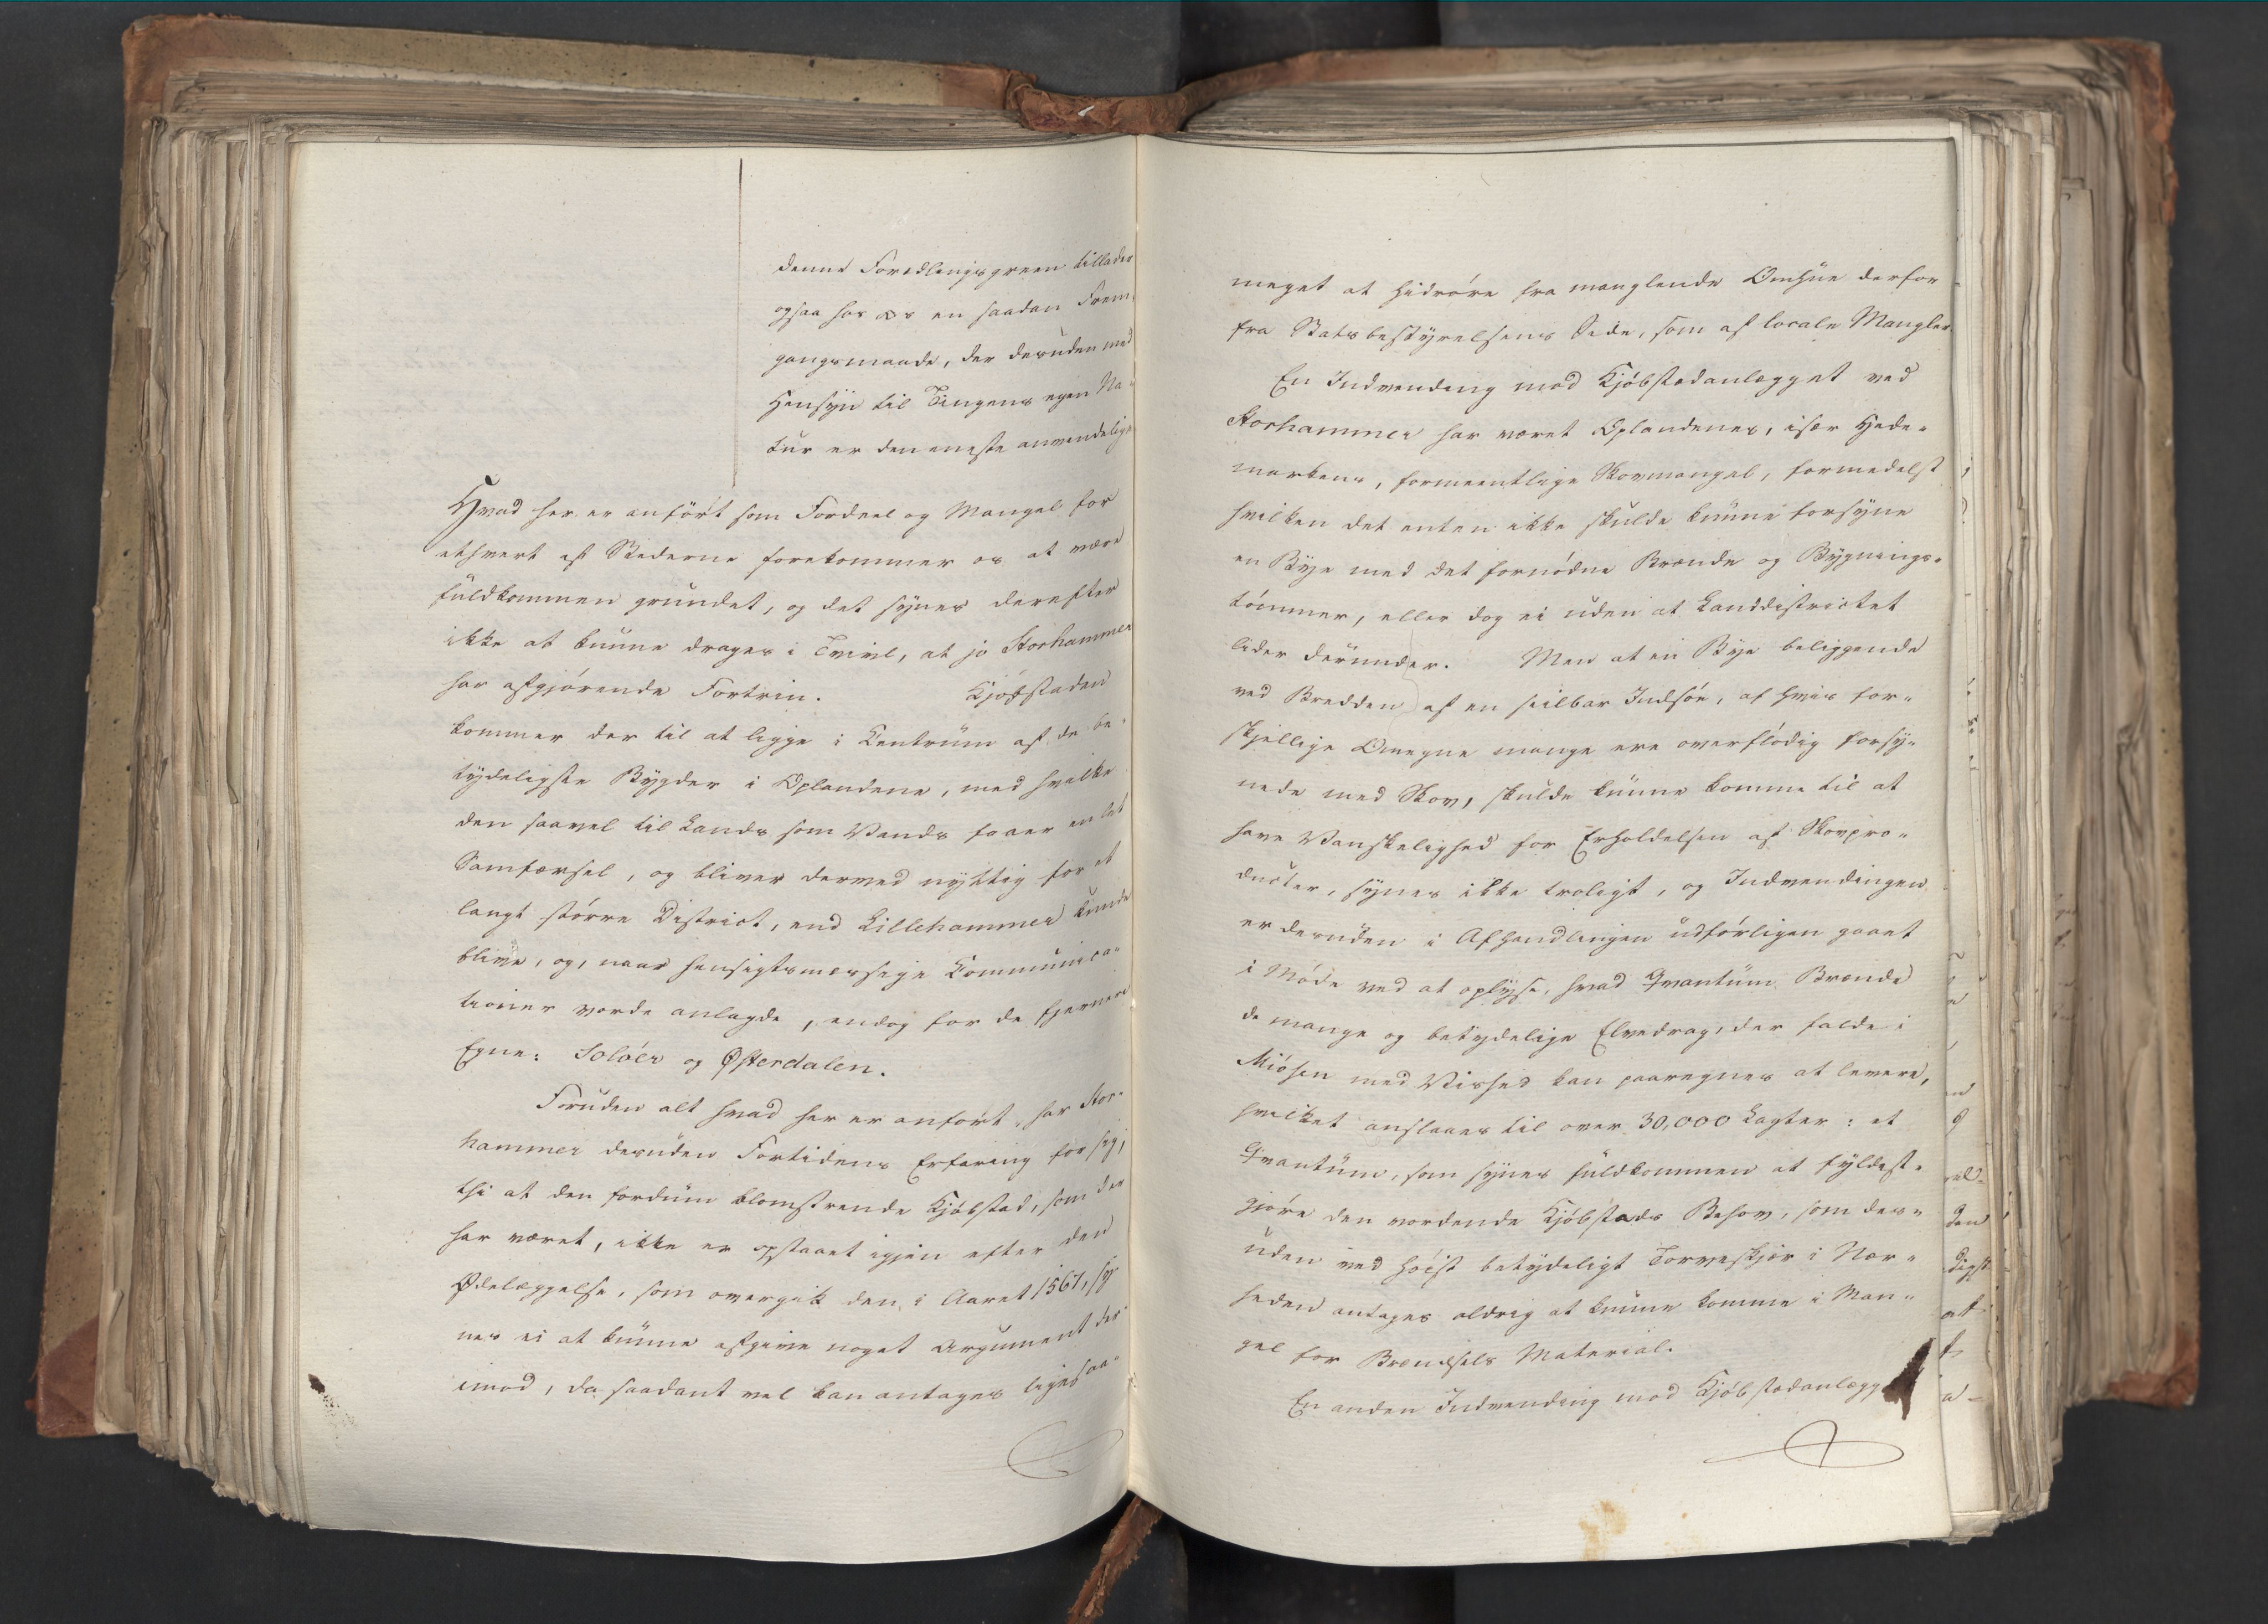 denne Forædlingsgreen tillader
ogsaa hos os en saadan Frem-
gangsmaade, der desuden med
Hensÿn til Tingens egen Na-
tur er den eneste anvendelige
Hvad her er anført som Fordeel og Mangel for
ethvert af Stederne forekommer os at være
fuldkommen grundet, og det sÿnes derefter
ikke at kunne drages i Tvivl, at jo Storhammer
har afgjørende Fortrin. Kjøbstaden
kommer der til at ligge i Centrum af de be-
tÿdeligste Bÿgder i Oplandene, med hvilke
den saavel til Lands som Vands faaer en let
Samfærsel, og bliver derved nÿttig for et
langt større District, end Lillehammer kunde
blive, og, naar hensigtsmæssige Communica-
tioner vorde anlagde, endog for de fjernere
Egne: Solöer og Østerdalen.
Foruden alt hvad her er anført, har Stor-
hammer desuden Fortidens Erfaring for sig;
thi at den fordum blomstrende Kjøbstad, som der
har været, ikke er opstaaet igjen efter den
Ødelæggelse, som overgik den i Aaret 1567, sÿ-
nes ei at kunne afgive noget Argument der-
imod, da saadant vel kan antages ligesaa-
meget at hidrøre fra manglende Omhue derfor
fra Statsbestÿrelsens Side, som af locale Mangler.
En Indvending mod Kjøbstadanlægget ved
Storhammer har været Oplandenes, især Hede-
markens, formeentlige Skovmangel, formedelst
hvilken det enten ikke skulde kunne forsÿne
en Bÿe med det fornødne Brænde og Bÿgnings-
tømmer, eller dog ei uden at Landdistrictet
lider derunder. Men at en Bÿe beliggende
ved Bredden af en seilbar Indsøe, af hvis for-
skjellige Omegne mange ere overflødig forsÿ-
nede med Skov, skulde kunne komme til at
have Vanskelighed for Erholdelsen af Skovpro-
ducter, sÿnes ikke troligt, og Indvendingen
er desuden i Afhandlingen udførligen gaaet
i Møde ved at oplÿse, hvad Qvantum Brænde
de mange og betÿdelige Elvedrag, der falde i
Miösen med Vished kan paaregnes at levere,
hvilket anslaaes til over 30,000 Lagter: et
Qvantum, som sÿnes fuldkommen at fÿldest-
gjøre den vordende Kjøbstads Behov, som des-
uden ved høist betÿdeligt Torveskjær i Nær-
heden antages aldrig at kunne komme i Man-
gel for Brændsels Material.
En anden Indvending mod Kjøbstadanlægg